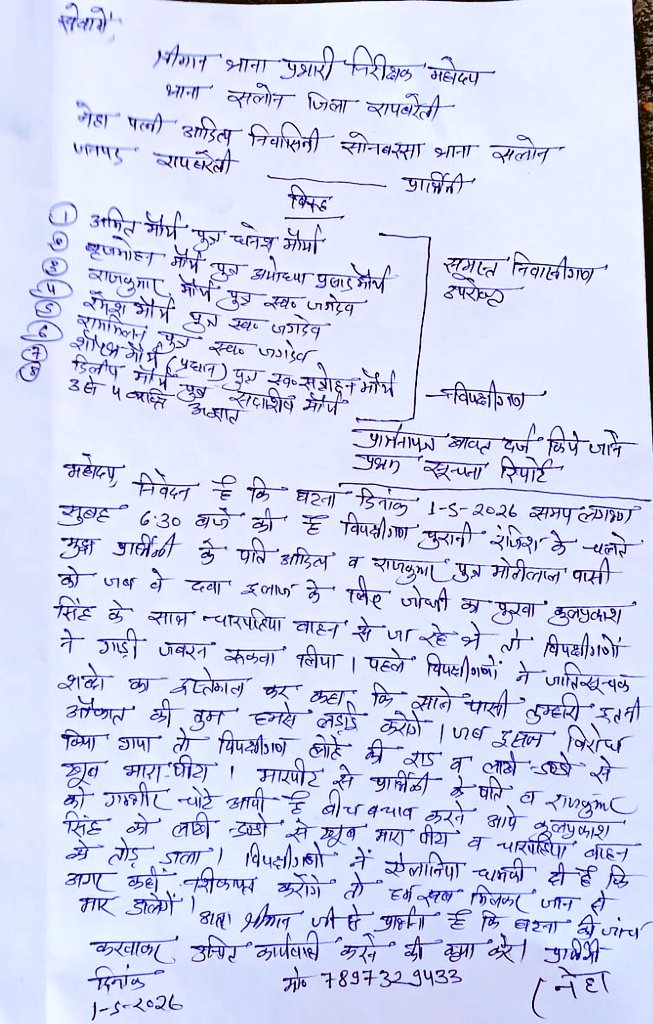 सेवामें,
श्रीमान थाना प्रभारी निरीक्षक महोदय
थाना सलोन जिला रायबरेली
नेहा पत्नी आदित्य निवासिनी सोनबरसा थाना सलोन
जनपद रायबरेली
प्रार्थिनी
विरुद्ध
① अमित मौर्य पुत्र धनेश मौर्या
② बृजमोहन मौर्य पुत्र अयोध्या प्रसाद मौर्य
③ राजकुमार मौर्य पुत्र स्व० जगदेव
④ रमेश मौर्य पुत्र स्व० जगदेव
⑤ राममिलन पुत्र स्व० जगदेव
⑥ मौर्य (प्रधान) पुत्र स्व० मौर्य
⑦ दिलीप मौर्य पुत्र सदाशिव मौर्य
⑧ व 4 व्यक्ति अज्ञात
समस्त निवासीगण
उपरोक्त
विपक्षीगण
प्रार्थनापत्र बावत दर्ज किये जाने
प्रथम सूचना रिपोर्ट
महोदय,
निवेदन है कि घटना दिनांक 1-5-2026 समय लगभग
सुबह 6:30 बजे की है विपक्षीगण पुरानी रंजिश के चलते
मुझ प्रार्थिनी के पति आदित्य व राजकुमार पुत्र मोतीलाल पासी
को जब वे दवा इलाज के लिए का पुरवा कुलप्रकाश
सिंह के साथ चारपहिया वाहन से जा रहे थे, तो विपक्षीगणों
ने गाड़ी जबरन रूकवा लिया। पहले विपक्षीगणों ने जातिसूचक
शब्दो का इस्तेमाल कर कहा कि साले पासी तुम्हारी इतनी
औकात की तुम हमसे लड़ाई करोगे। जब इसका विरोध
किया गया तो विपक्षीगण लोहे की राड व लाठी-डण्डो से
खूब मारा-पीटा। मारपीट से प्रार्थिनी के पति व राजकुमार
को गम्भीर चोटे आयी है बीच बचाव करने आये कुलप्रकाश
सिंह को लाठी-डण्डो से खूब मारा पीटा व चारपहिया वाहन
को तोड़ डाला। विपक्षीगणो ने ऐलानिया धमकी दी है कि
अगर कहीं शिकायत करोगे तो हम सब मिलकर जान से
मार डालेगें।
अतः श्रीमान जी से प्रार्थना है कि घटना की जांच
करवाकर उचित कार्यवाही करने की कृपा करे। प्रार्थिनी
दिनांक मो० 7897329433 (नेहा
1-5-2026